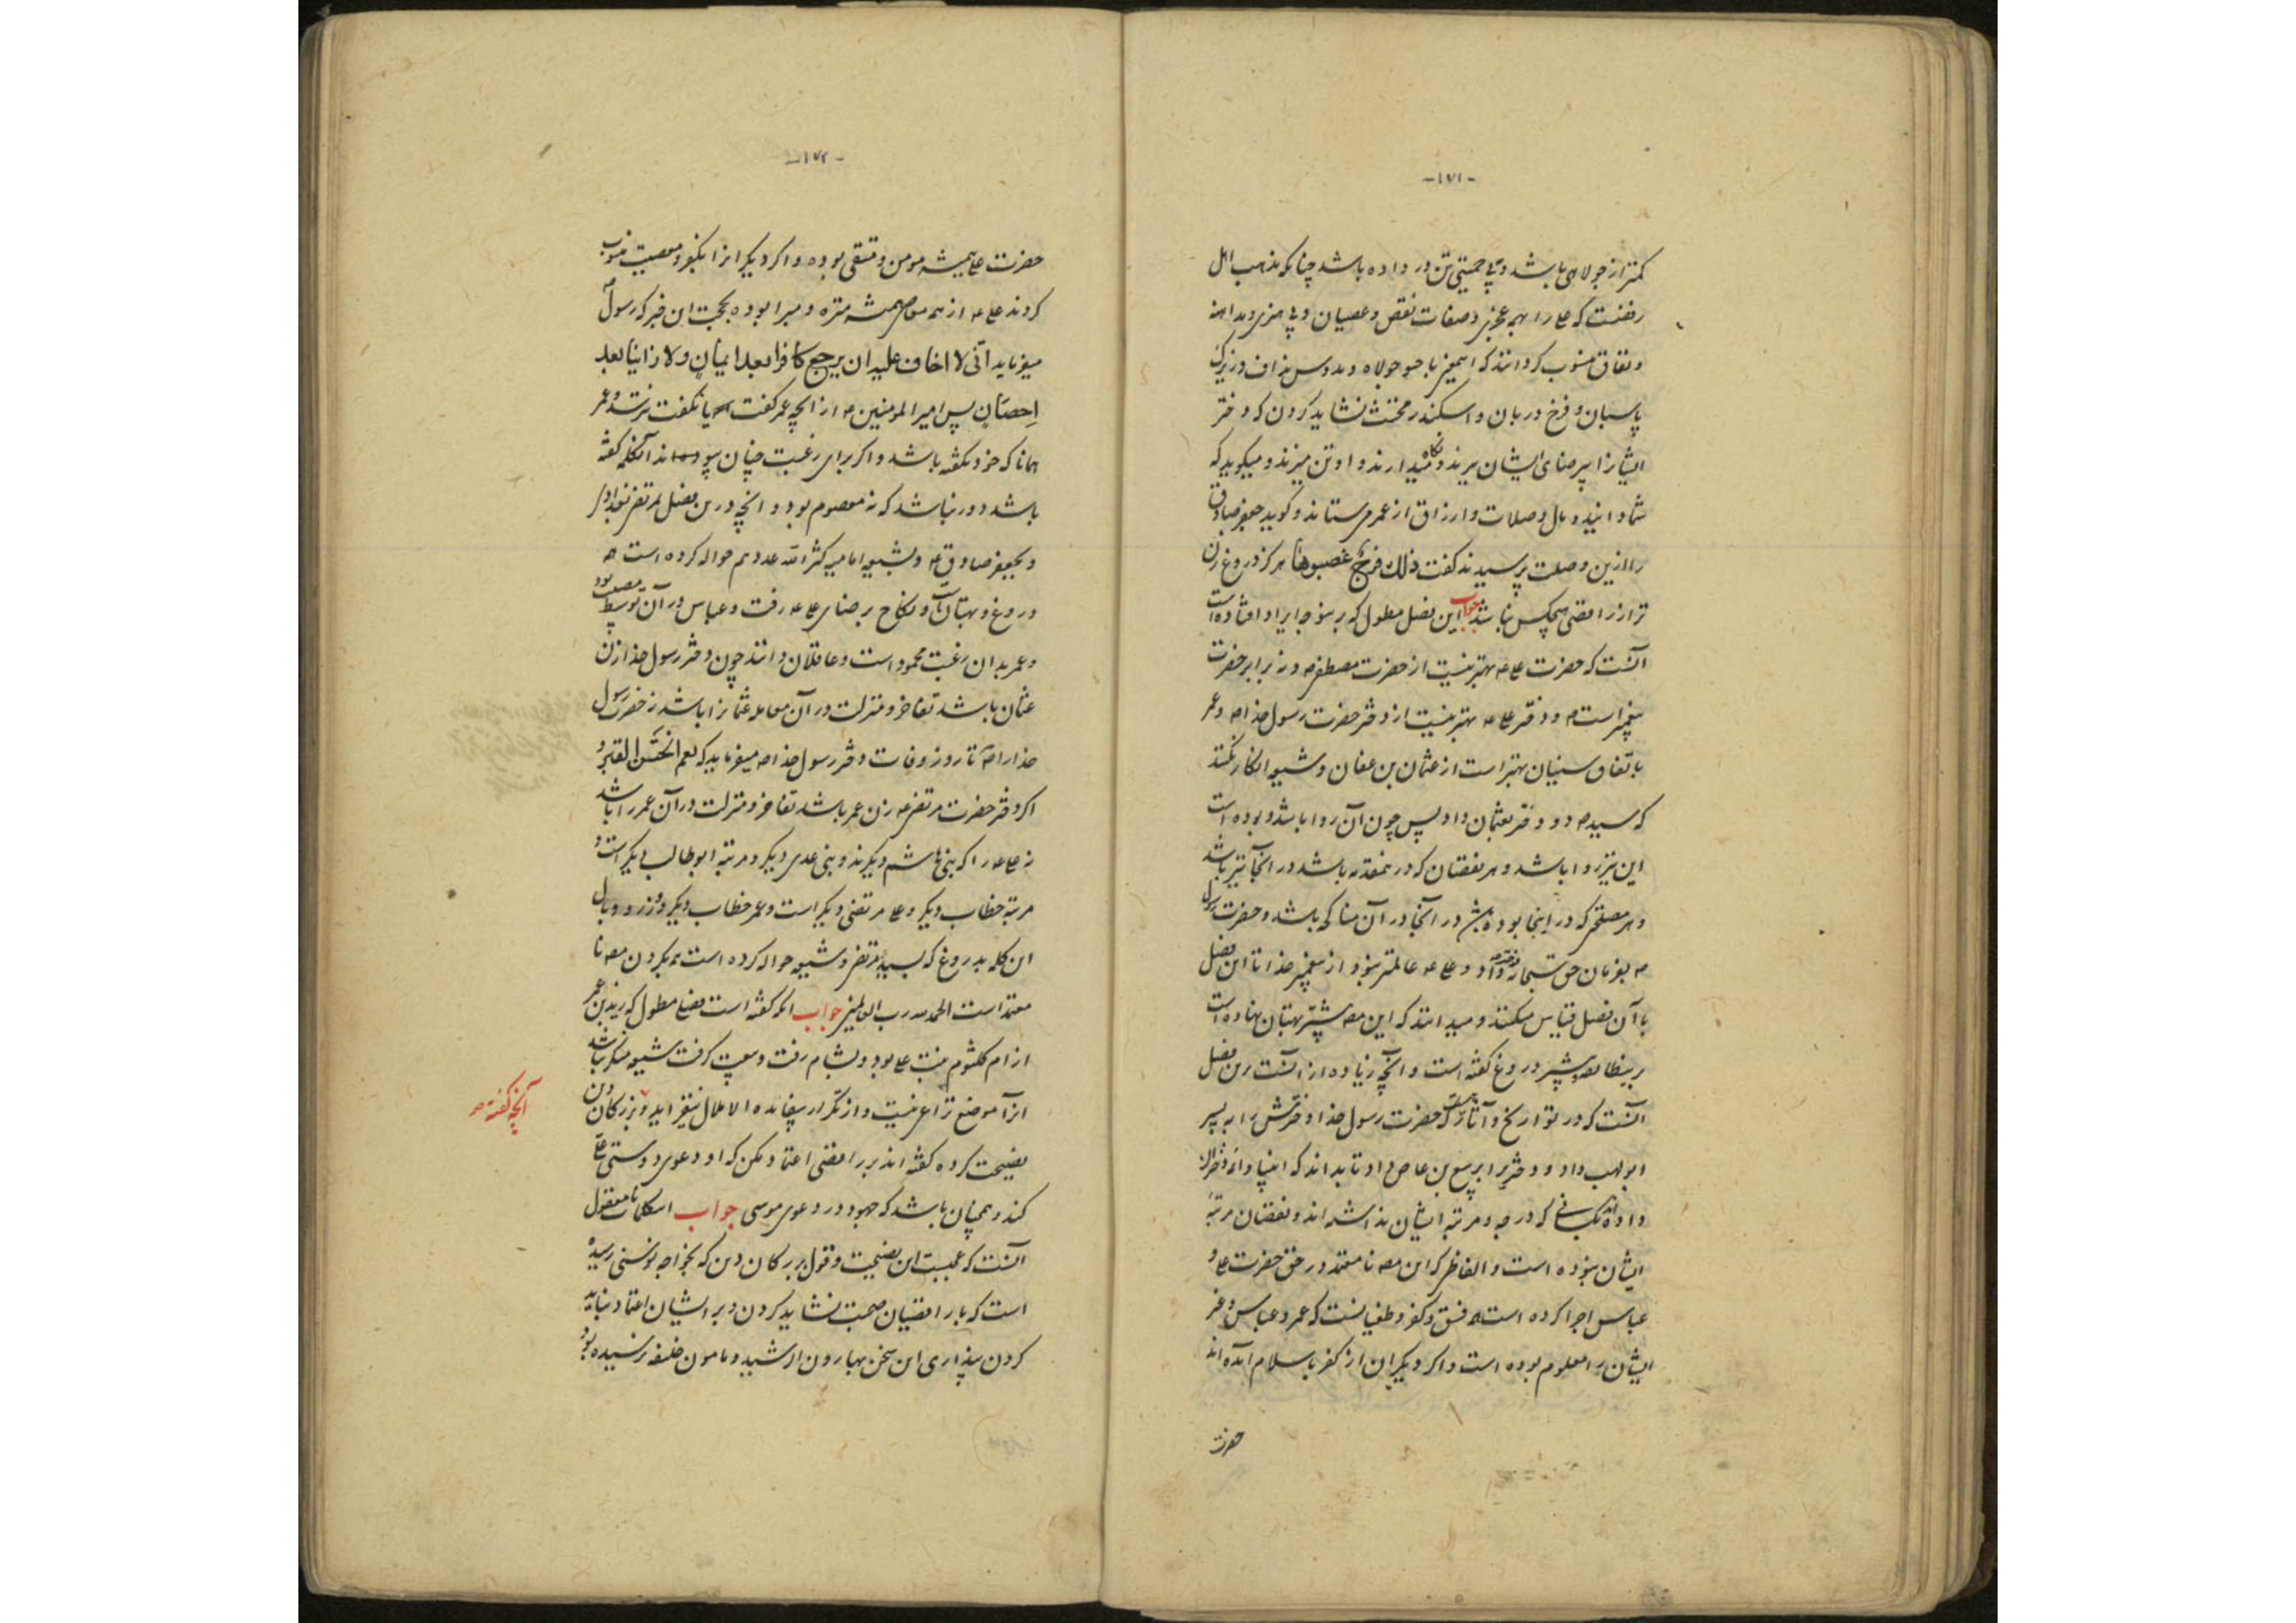 -١٧١-
کمتر از جولاهی باشد و بی حمیتی تن در داده باشد چنانکه مذهب اهل
رفضست که علی را بهمه عجزی و صفات نقص و عصیان و بی هنری و مداهنه
و نفاق منسوب کردانند که
پاسبان و فرخ دربان و اسکندر مخنث نشاید کردن که دختر
ایشانرا بی رضای ایشان ببرند و نگاه میدارند و او تن میزند و میکوید که
شما دانید و مال و صلات و ارزاق از عمر می ستاند و کوید جعفر صادق
را ازین وصلت پرسیدند کفت ذلک فرج غصبوها هرکز دروغ زن
تر از رافضی هیچکس نباشد جواب این فصل مطول که
آنست که حضرت علی ع بهتر نیست از حضرت مصطفی ص و نه برابر حضرت
پیغمبر است ص و دختر علی ع بهتر نیست از دختر حضرت رسول خدا ص و عمر
باتفاق سنیان بهتر است از عثمان بن عفان و شیعه انکار نکنند
که سید ص دو دختر بعثمان داد پس چون آن روا باشد و بوده است
این نیز روا باشد و هر نقصان که در نعقد نه باشد در آنجا نیز باشد
و هر مصلحتی که در اینجا بوده باشد در آنجا در آن مناکحه باشد و حضرت رسول
ص بفرمان حق سبحانه دختر داد و علی ع عالمتر نبود از پیغمبر خدا تا این فصل
با آن فصل قیاس میکنند و میدانند که این مصنف بیشتر بهتان نهاده است
بر دروغ گفته است و آنچه زیاده از آنست درین فصل
آنست که در تواریخ و آثار که حضرت رسول خدا دخترش را به پسر
ابولهب داد و دختری را بربیع بن عاص داد تا بداند که انبیا دختران
داده اند بکسانی که درجه و مرتبه ایشان نداشته اند و نقصان مرتبه
ایشان نبوده است و الفاظی که این مصنف نامعتمد در حق حضرت علی و
عباس اجرا کرده است فسق و کفر و طغیانست که عمر و عباس و غیر
ایشان را معلوم بوده است و اکر دیکران از کفر باسلام آمده اند
حضرت
-١٧٢-
حضرت علی همیشه مومن و متقی بوده و اکر دیکرانرا بکفر و معصیت منسوب
کردند علی ع از همه معاصی همیشه منزه و مبرا بوده بحجت این خبر که رسول
میفرماید انّی لا اخاف علیه ان یرجع کافرا بعد ایمان ولا زانیا بعد
اِحصَان پس امیر المومنین ع از آنچه عمر گفت یا نکفت نترسد و عمر
همانا که خود نکفته باشد و اکر برای رغبت چنان آنکلمه گفته
باشد دور نباشد که نه معصوم بود و آنچه درین فصل بمرتضی بغدادی
و بجعفر صادق ع و بشیعه امامیه کثر الله عددهم حواله کرده است همه
دروغ و بهتان است و نکاح برضای علی ع رفت و عباس در آن توسط مصیب بود
و عمر بدان رغبت محمود است و عاقلان دانند چون دختر رسول خدا زن
عثمان باشد تفاخر و منزلت در آن معامله عثمانرا باشد نه حضرت رسول
خدا را ص تا روز وفات دختر رسول خدا ص میفرماید که نعم الختن القبر و
اکر دختر حضرت مرتضی ع زن عمر باشد تفاخر و منزلت در آن عمر را باشد
نه علی ع را که بنی هاشم دیکرند و بنی عدی دیکر و مرتبه ابوطالب دیکر است و
مرتبه خطاب دیکر و علی مرتضی دیکر است و عمر خطاب دیکر و وزر و وبال
این کله بدروغ که بسید مرتضی و شیعه حواله کرده است بکردن مصنف نا
معتمد است الحمد لله رب العالمین جواب آنکه گفته است فصلی مطول که زید بن عمر
از ام کلثوم بنت علی بود و بشام رفت و بیعت گرفت شیعه منکر نباشند
از آن موضع نزاعی نیست و از تکرار بیفایده الا ملال نیفزاید و بزرکان دین
آنچه گفته
نصیحت کرده گفته اند بر رافضی اعتماد مکن که او دعوی دوستی علی
کند و همچنان باشد که جهود در دعوی موسی جواب این کلمات نامعقول
آنست که عجبست این نصیحت و قول بزرکان دین که بخواجه نوسنی رسیده
است که با رافضیان صحبت نشاید کردن و بر ایشان اعتماد نباید
کردن پنداری این سخن بهارون الرشید و مامون خلیفه نرسیده بود